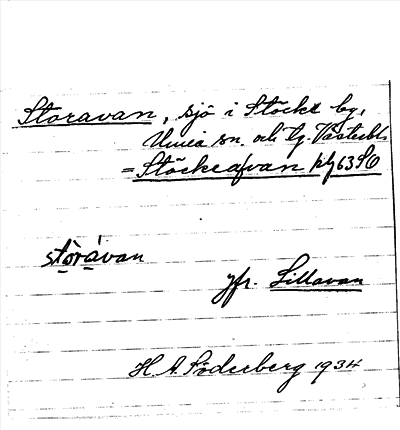 Storavan, sjö i Stöcke by,
Umeå sn. och tg. Västerbl.
= Stöckeåvan kbl 63 SO
stòrávan
jfr. Lillavan
H. A. Söderberg 1934